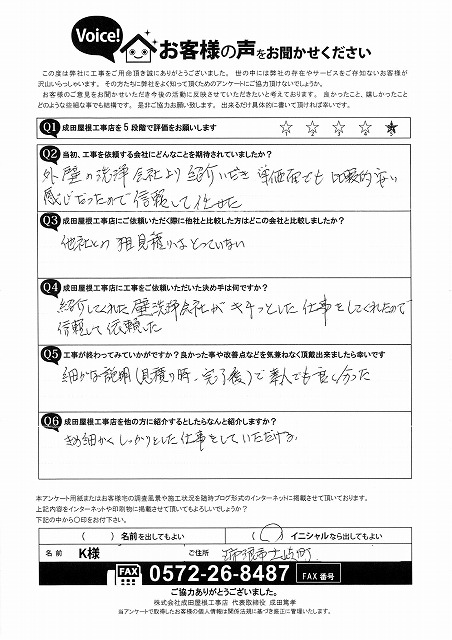 Voice! お客様の声をお聞かせください
この度は弊社に工事をご用命頂き誠にありがとうございました。 世の中には弊社の存在やサービスをご存知ないお客様が
沢山いらっしゃいます。 その方たちに弊社をよく知って頂くためのアンケートにご協力頂けないでしょうか。
お客様のご意見をお聞かせいただき今後の活動に反映させていただきたいと考えております。 良かったこと、嬉しかったこと
どのような些細な事でも結構です。 是非ご協力お願い致します。 出来るだけ具体的に書いて頂ければ幸いです。
Q1 成田屋根工事店を5段階で評価をお願いします ☆1 ☆2 ☆3 ☆4 ☆5
Q2 当初、工事を依頼する会社にどんなことを期待されていましたか?
外壁の洗浄会社より紹介いただき 評価面でも比較的高い
感じだったので信頼して任せた
Q3 成田屋根工事店にご依頼いただく際に他社と比較した方はどこの会社と比較しましたか?
他社との 相見積りはとっていない
Q4 成田屋根工事店に工事をご依頼いただいた決め手は何ですか?
紹介してくれた壁洗浄会社がキチッとした仕事をしてくれたので
信頼して依頼した
Q5 工事が終わってみていかがですか?良かった事や改善点などを気兼ねなく頂戴出来ましたら幸いです
細かな説明(見積り時、完了後)で素人でも良く分った
Q6 成田屋根工事店を他の方に紹介するとしたらなんと紹介しますか?
きめ細かく しっかりとした仕事をしていただける。
本アンケート用紙またはお客様宅の調査風景や施工状況を随時ブログ形式のインターネットに掲載させて頂いております。
上記内容をインターネットや印刷物に掲載させて頂いてもよろしいでしょうか?
下記の中から〇印をお付下さい。
( ) 名前を出してもよい (〇) イニシャルなら出してもよい
名前 K様 ご住所 瑞浪市土岐町
FAX 0572-26-8487 FAX番号
ご協力ありがとうございました。
株式会社成田屋根工事店 代表取締役 成田篤孝
当アンケートで取得したお客様の個人情報は関係法規に基づき厳正に管理いたします。